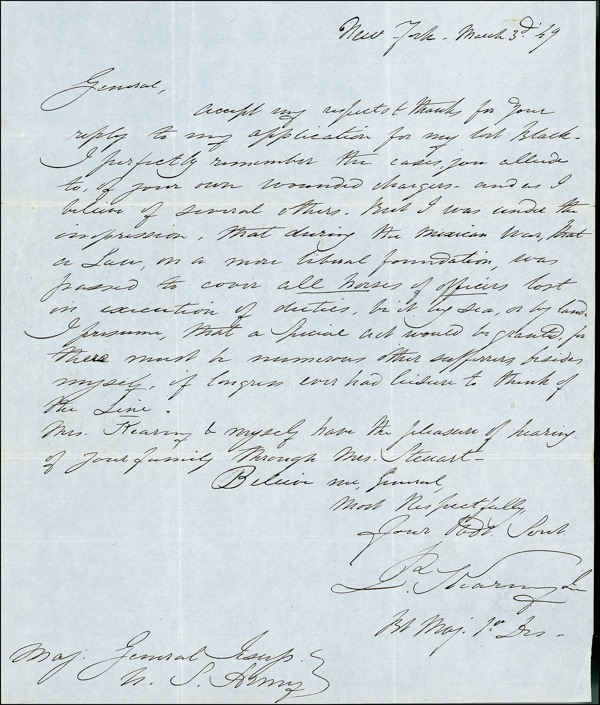 New York. March 3d '49
General,
Accept my respects & thanks for your
reply to my application for my lost Black-
I perfectly remember the cases, you allude
to, of your own wounded chargers- and as I
believe of several others. But I was under the
impression, that during the Mexican War, that
a Law, on a more liberal foundation, was
passed to cover all horses of officers lost
in execution of duties, be it by sea, or by land.
I presume, that a special act would be granted, for
there must be numerous other sufferers besides
myself, if Congress ever had leisure to think of
the Line.
Mrs. Kearny & myself have the pleasure of hearing
of your family through Mrs. Steuart-
Believe me, General,
Most Respectfully
Your Obdt. Servt.
P. Kearny Jr
Bt Maj. 1st Drs.
Maj. General Jesup.
U. S. Army